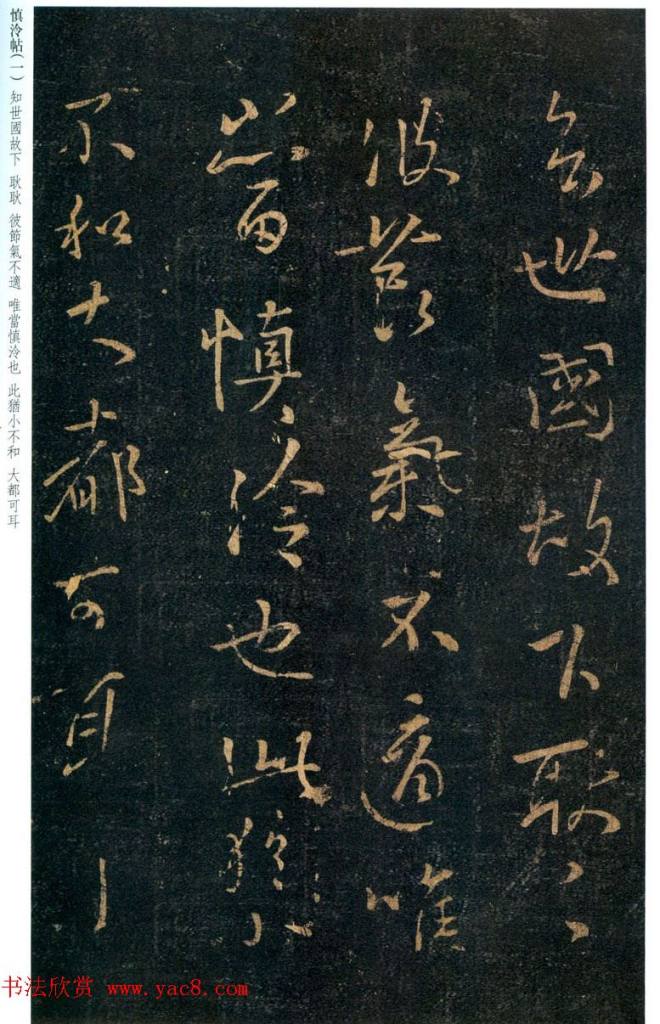 慎泠帖(一) 知世國故下 耿耿 彼節氣不適 唯當慎泠也 此猶小不和 大都可耳
知世國故下耿〻
彼節氣不適唯
當慎泠也此猶小
不和大都可耳
书法欣赏 www.yac8.com